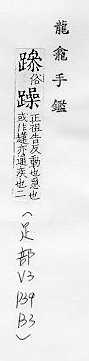 龍龕手鑑
𨅔俗躁正祖告反動也急也
或作趮亦通疾也二
(足部
V3
P39
B3)